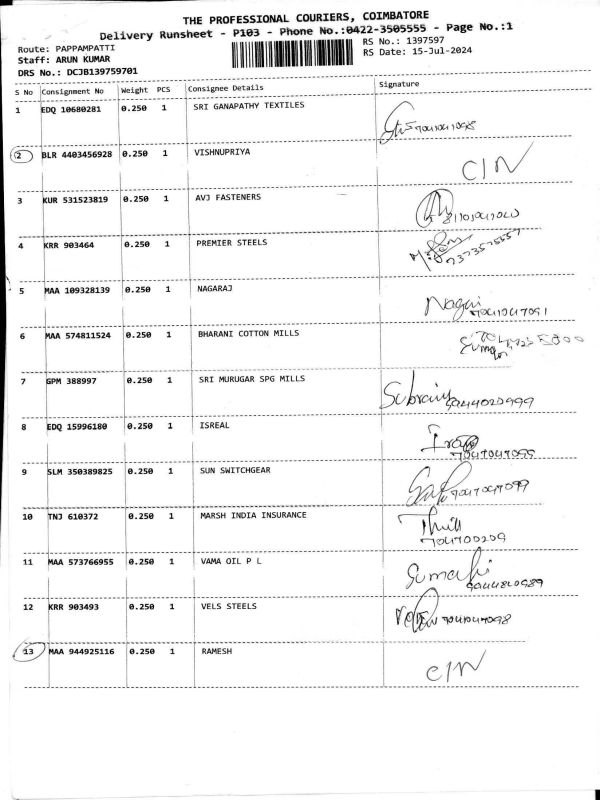 THE PROFESSIONAL COURIERS, COIMBATORE
Delivery Runsheet - P103 - Phone No.:0422-3505555 - Page No.:1
Route: PAPPAMPATTI RS No.: 1397597
Staff: ARUN KUMAR RS Date: 15-Jul-2024
DRS No.: DCJB139759701
S No Consignment No Weight PCS Consignee Details Signature
1 EDQ 10680281 0.250 1 SRI GANAPATHY TEXTILES
2 BLR 4403456928 0.250 1 VISHNUPRIYA C/N
3 KUR 531523819 0.250 1 AVJ FASTENERS
4 KRR 903464 0.250 1 PREMIER STEELS
5 MAA 109328139 0.250 1 NAGARAJ
6 MAA 574811524 0.250 1 BHARANI COTTON MILLS
7 GPM 388997 0.250 1 SRI MURUGAR SPG MILLS
8 EDQ 15996180 0.250 1 ISREAL
9 SLM 350389825 0.250 1 SUN SWITCHGEAR
10 TNJ 610372 0.250 1 MARSH INDIA INSURANCE
11 MAA 573766955 0.250 1 VAMA OIL P L
12 KRR 903493 0.250 1 VELS STEELS
13 MAA 944925116 0.250 1 RAMESH C/N